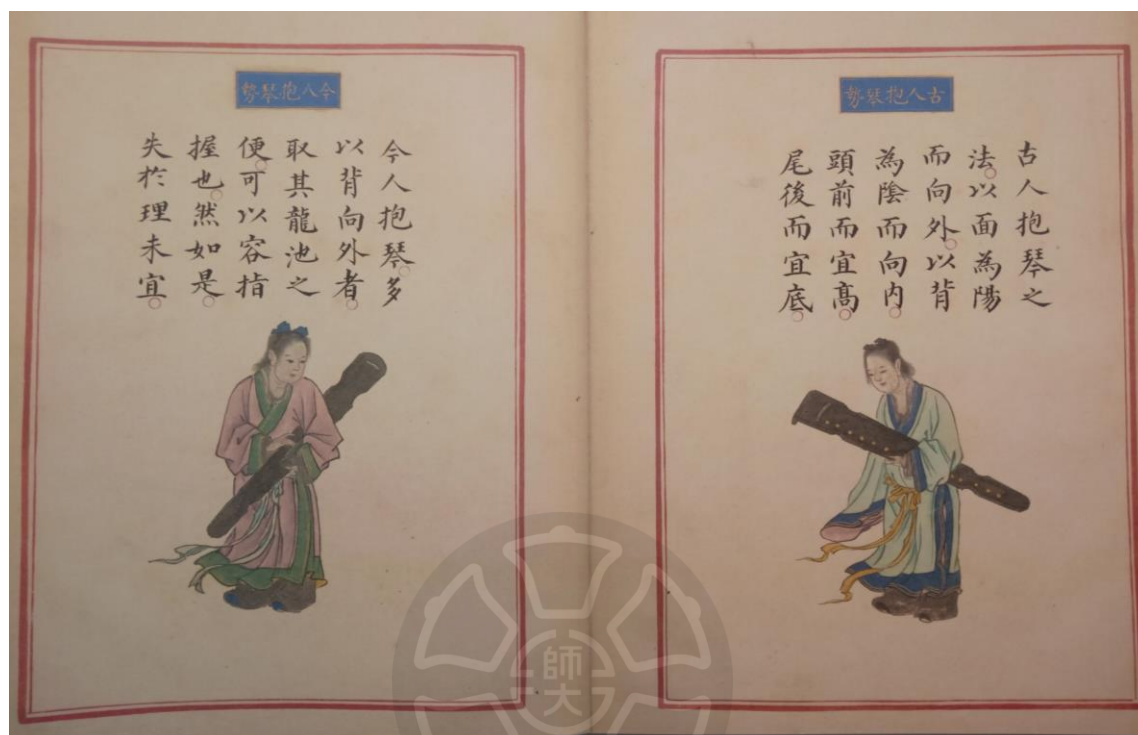 古人抱琴勢
古人抱琴之
法。以面為陽
而向外。以背
為陰而向内。
頭前而宜髙。
尾後而宜底。
今人抱琴勢
今人抱琴。多
以背向外者。
取其龍池之
便。可以容指
握也。然如是。
失於理未宜。
師大